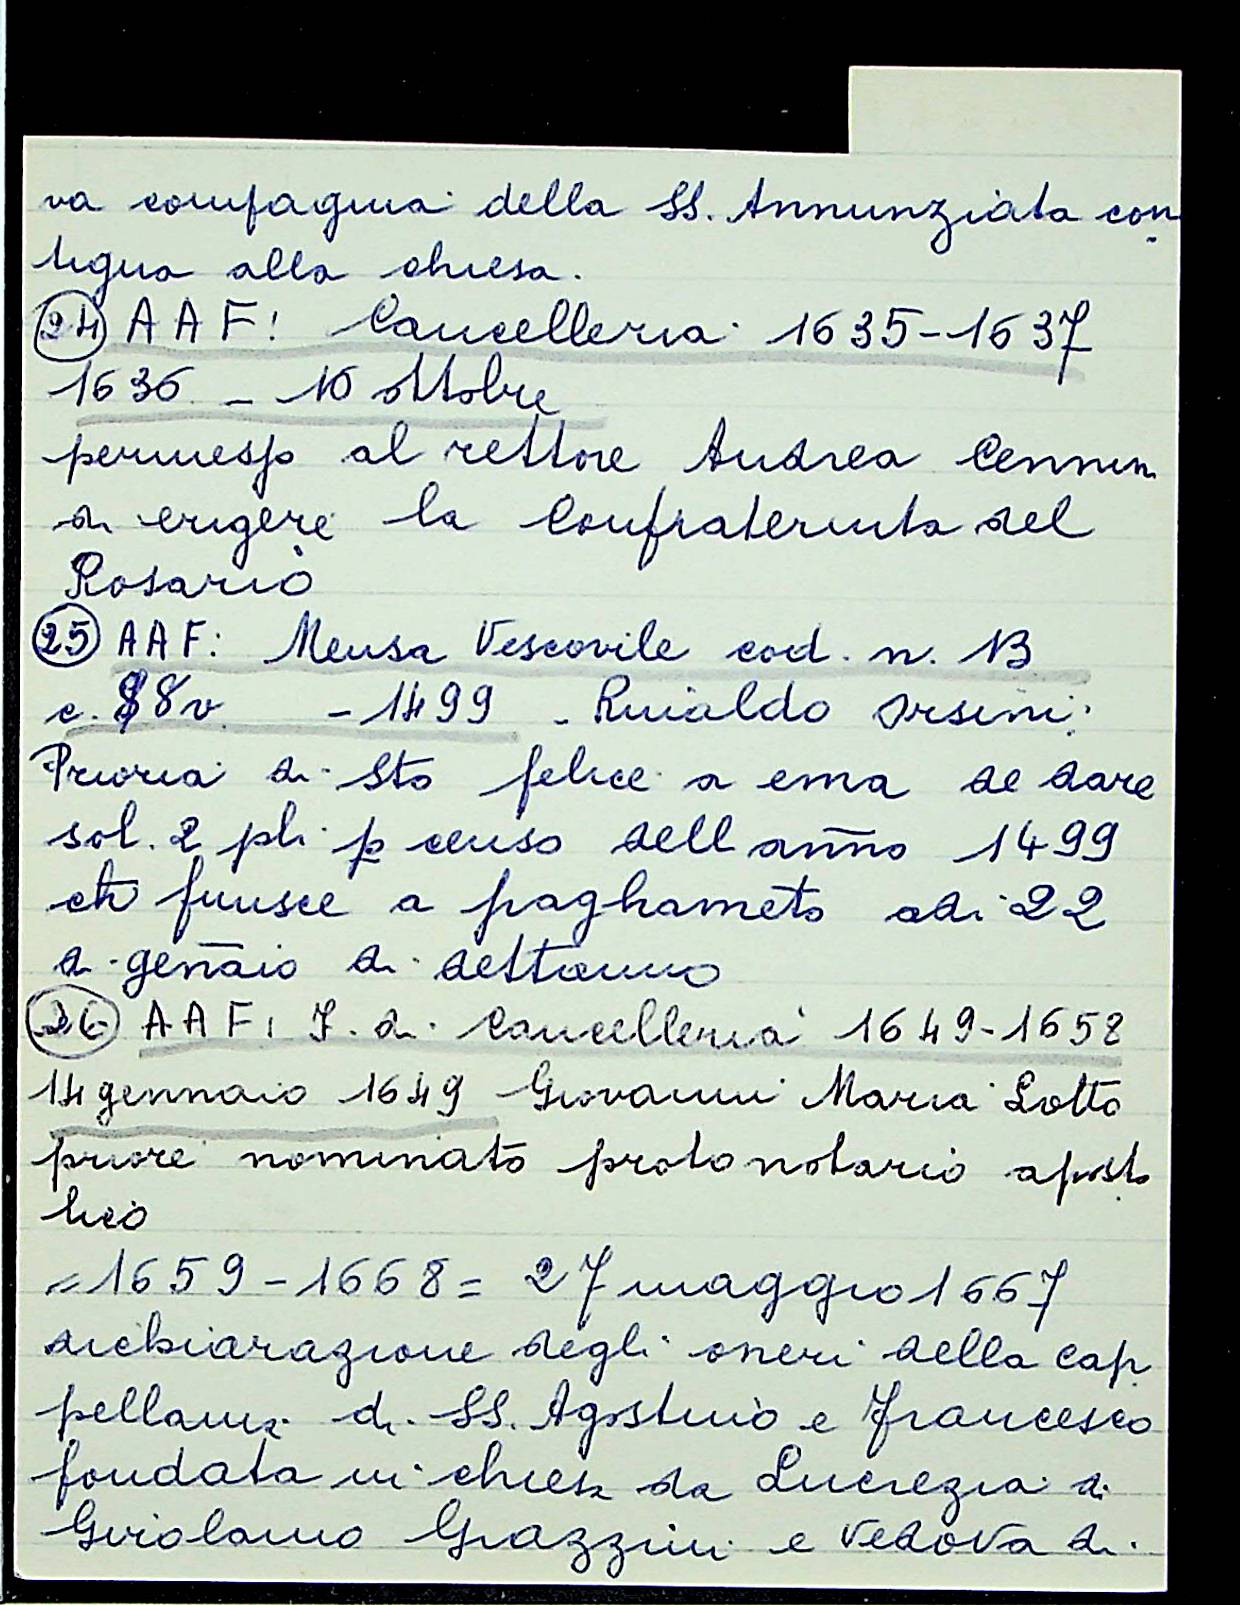 va compagnia della SS. Annunziata con
tigua alla chiesa.
24 AAF: Cancelleria 1635-1637
1636 - 10 ottobre
permesso al rettore Andrea Cennini
di erigere la Confraternita del
Rosario
25 AAF: Mensa Vescovile cod. n. 13
c. 88v - 1499 - Rinaldo Orsini:
Prioria di Sto felice a ema de dare
sol. 2 pli p censo dell anño 1499
che funisce a paghameto adi 22
di gen̄aio di dettanno
26 AAF: J. di Cancelleria 1649-1658
14 gennaio 1649 Giovanni Maria Lotto
priore nominato protonotario aposto
lico
= 1659-1668 = 27 maggio 1667
dichiarazione degli oneri della cap
pellania di SS. Agostino e Francesco
fondata in chiesa da Lucrezia di
Girolamo Grazzini e vedova di